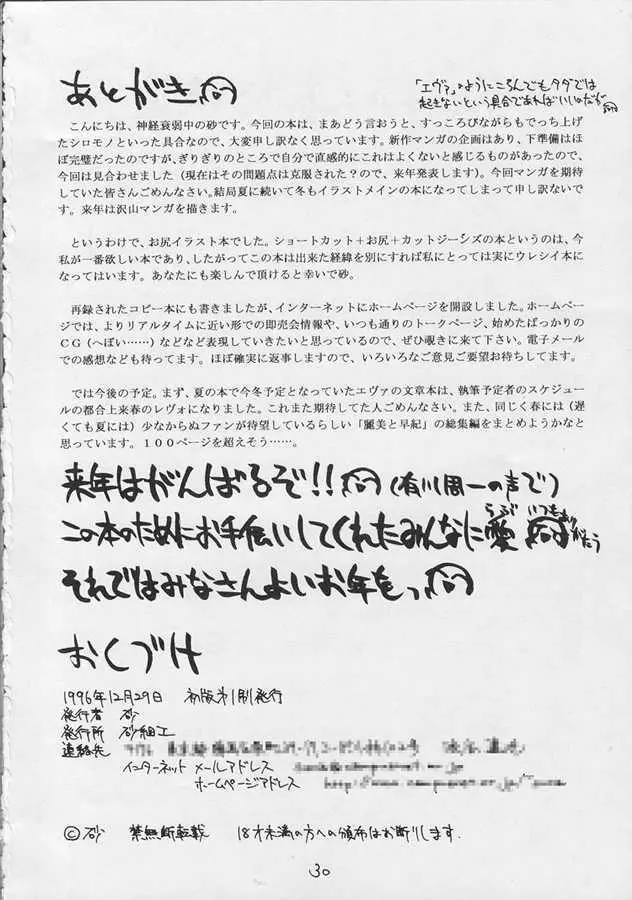 あとがき
「エヴァ」のようにころんでもタダでは
起きないという具合であればいいのだが
こんにちは、神経衰弱中の砂です。今回の本は、まあどう言おうと、すっころびながらもでっち上げ
たシロモノといった具合なので、大変申し訳なく思っています。新作マンガの企画はあり、下準備はほ
ぼ完璧だったのですが、ぎりぎりのところで自分で直感的にこれはよくないと感じるものがあったので、
今回は見合わせました（現在はその問題点は克服された？ので、来年発表します）。今回マンガを期待
していた皆さんごめんなさい。結局夏に続いて冬もイラストメインの本になってしまって申し訳ないで
す。来年は沢山マンガを描きます。
というわけで、お尻イラスト本でした。ショートカット＋お尻＋カットジーンズの本というのは、今
私が一番欲しい本であり、したがってこの本は出来た経緯を別にすれば私にとっては実にウレシイ本に
なってはいます。あなたにも楽しんで頂けると幸いで砂。
再録されたコピー本にも書きましたが、インターネットにホームページを開設しました。ホームペー
ジでは、よりリアルタイムに近い形での即売会情報や、いつも通りのトークページ、始めたばっかりの
ＣＧ（へぼい……）などなど表現していきたいと思っているので、ぜひ覗きに来て下さい。電子メール
での感想なども待ってます。ほぼ確実に返事しますので、いろいろなご意見ご要望お待ちしてます。
では今後の予定。まず、夏の本で今冬予定となっていたエヴァの文章本は、執筆予定者のスケジュー
ルの都合上来春のレヴォになりました。これまた期待してた人ごめんなさい。また、同じく春には（遅
くても夏には）少なからぬファンが待望しているらしい「麗美と早紀」の総集編をまとめようかなと
思っています。１００ページを超えそう……。
来年はがんばるぞ!! （有川周一の声で）
らぶ いつもありがたう
この本のためにお手伝いしてくれたみんなに愛
それではみなさんよいお年をっ
おくづけ
1996年12月29日 初版第1刷発行
発行者 砂
発行所 砂細工
連絡先
インターネット メールアドレス
ホームページアドレス
© 砂 禁無断転載 18才未満の方への頒布はお断りします.
30